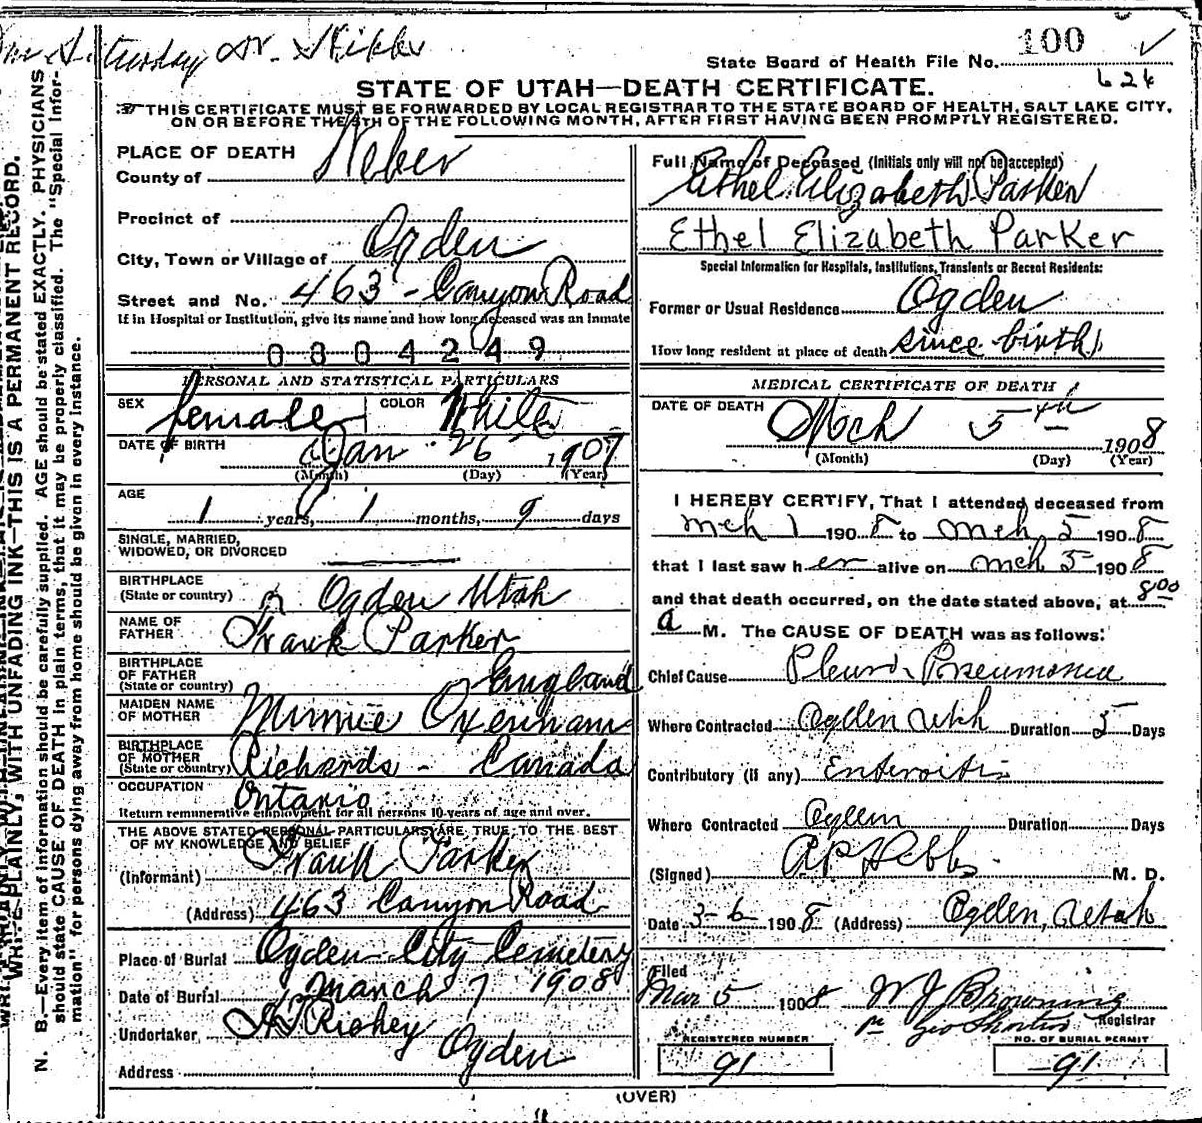 Saturday Dr.
100
State Board of Health File No.
624
STATE OF UTAH—DEATH CERTIFICATE.
THIS CERTIFICATE MUST BE FORWARDED BY LOCAL REGISTRAR TO THE STATE BOARD OF HEALTH, SALT LAKE CITY,
ON OR BEFORE THE 5TH OF THE FOLLOWING MONTH, AFTER FIRST HAVING BEEN PROMPTLY REGISTERED.
WRITE PLAINLY, WITH UNFADING INK—THIS IS A PERMANENT RECORD.
N. B.—Every item of information should be carefully supplied. AGE should be stated EXACTLY. PHYSICIANS
should state CAUSE OF DEATH in plain terms, that it may be properly classified. The "Special Infor-
mation" for persons dying away from home should be given in every instance.
PLACE OF DEATH
County of Weber
Precinct of
City, Town or Village of Ogden
Street and No. 463 - Canyon Road
If in Hospital or Institution, give its name and how long deceased was an inmate
0804249
PERSONAL AND STATISTICAL PARTICULARS
SEX female COLOR White
DATE OF BIRTH Jan 26 1907
(Month) (Day) (Year)
AGE
1 years, 1 months, 9 days
SINGLE, MARRIED,
WIDOWED, OR DIVORCED
BIRTHPLACE
(State or country) Ogden Utah
NAME OF
FATHER Frank Parker
BIRTHPLACE
OF FATHER
(State or country) England
MAIDEN NAME
OF MOTHER Minnie Oxenham
BIRTHPLACE
OF MOTHER
(State or country) Richards - Canada
OCCUPATION Ontario
Return remunerative employment for all persons 10 years of age and over.
THE ABOVE STATED PERSONAL PARTICULARS ARE TRUE TO THE BEST
OF MY KNOWLEDGE AND BELIEF
(Informant) Frank Parker
(Address) 463 Canyon Road
Place of Burial Ogden City Cemetery
Date of Burial March 7 1908
Undertaker Richey
Address Ogden
Full Name of Deceased (Initials only will not be accepted)
Ethel Elizabeth Parker
Ethel Elizabeth Parker
Special Information for Hospitals, Institutions, Transients or Recent Residents:
Former or Usual Residence Ogden
How long resident at place of death since birth
MEDICAL CERTIFICATE OF DEATH
DATE OF DEATH
Mch 5th 1908
(Month) (Day) (Year)
I HEREBY CERTIFY, That I attended deceased from
Mch 1 1908 to Mch 5 1908
that I last saw her alive on Mch 5 1908
and that death occurred, on the date stated above, at 8:00
a M. The CAUSE OF DEATH was as follows:
Chief Cause Pleuro Pneumonia
Where Contracted Ogden Utah Duration 5 Days
Contributory (if any) Enteroitis
Where Contracted Ogden Duration Days
(Signed) M. D.
Date 3-6 1908 (Address) Ogden, Utah
Filed
Mar 5 1908 W J Browning
Registrar
REGISTERED NUMBER
91
NO. OF BURIAL PERMIT
91
(OVER)